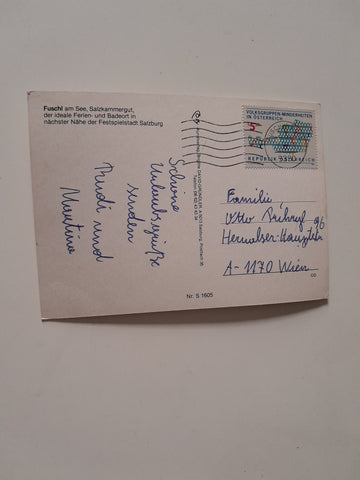 Fuschl am See, Salzkammergut,
der ideale Ferien- und Badeort in
nächster Nähe der Festspielstadt Salzburg
Schöne
Urlaubsgrüße
senden
Rudi und
VOLKSGRUPPEN·MINDERHEITEN
IN ÖSTERREICH
S 5
REPUBLIK ÖSTERREICH
Familie
Otto
Hernalser-Hauptstr
A-1170 Wien
Nr. S 1605